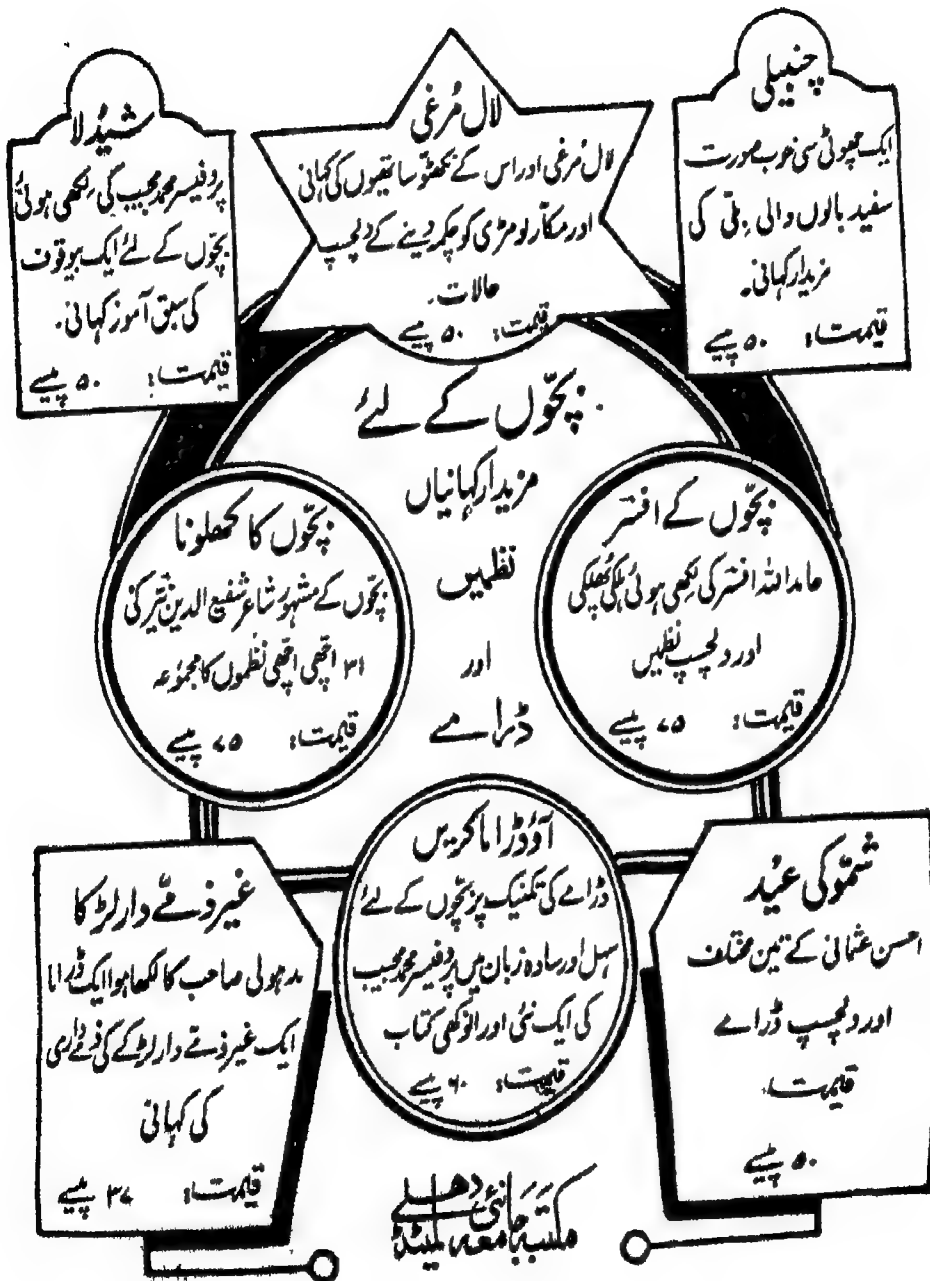 چنبیلی
ایک چھوٹی سی خوب صورت
سفید بالوں والی بلّی کی
مزیدار کہانی۔
قیمت: ۵۰ پیسے
لال مُرغی
لال مُرغی اور اس کے نکھٹّو ساتھیوں کی کہانی
اور مکّار لومڑی کو چکمہ دینے کے دلچسپ
حالات۔
قیمت: ۵۰ پیسے
شیدُلا
پروفیسر محمد مجیب کی لکھی ہوئی
بچّوں کے لئے ایک بیوقوف
کی سبق آموز کہانی۔
قیمت: ۵۰ پیسے
بچّوں کے لئے
مزیدار کہانیاں
نظمیں
اور
ڈرامے
بچّوں کے افسر
حامد اللہ افسر کی لکھی ہوئی ہلکی پھلکی
اور دلچسپ نظمیں
قیمت: ۷۵ پیسے
بچّوں کا کھلونا
بچّوں کے مشہور شاعر شفیع الدین نیّر کی
۳۱ اچھی اچھی نظموں کا مجموعہ
قیمت: ۷۵ پیسے
شمّو کی عید
احسن عثمانی کے تین مختلف
اور دلچسپ ڈرامے
قیمت:
۵۰ پیسے
آؤ ڈراما کریں
ڈرامے کی تکنیک پر بچّوں کے لئے
سہل اور سادہ زبان میں پروفیسر محمد مجیب
کی ایک نئی اور انوکھی کتاب
قیمت: ۶۰ پیسے
غیر ذمّے دار لڑکا
مدہولی صاحب کا لکھا ہوا ایک ڈراما
ایک غیر ذمّے دار لڑکے کی ذمّے داری
کی کہانی
قیمت: ۳۷ پیسے
مکتبہ جامعہ لمیٹڈ نئی دھلی